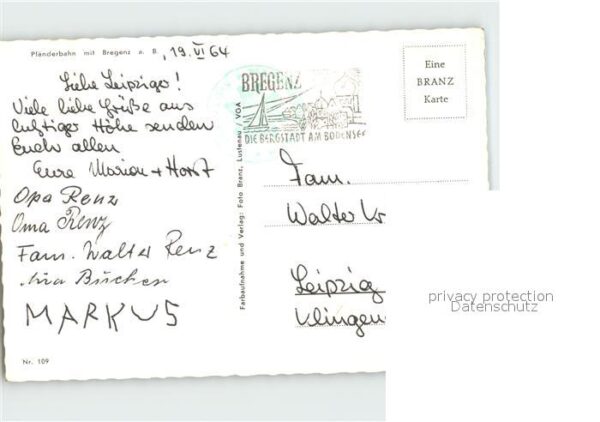 Pfänderbahn mit Bregenz a. B. , 19. VI 64
Liebe Leipziger!
Viele liebe Grüße aus
luftiger Höhe senden
Euch allen
Eure Marion + Horst
Opa Renz
Oma Renz
Fam. Walter Renz
MARKUS
Nr. 109
Farbaufnahme und Verlag: Foto Branz, Lustenau / VGA
BREGENZ
DIE BERGSTADT AM BODENSEE
Eine
BRANZ
Karte
Fam.
Walter Kr
Leipzig
Klingen
privacy protection
Datenschutz